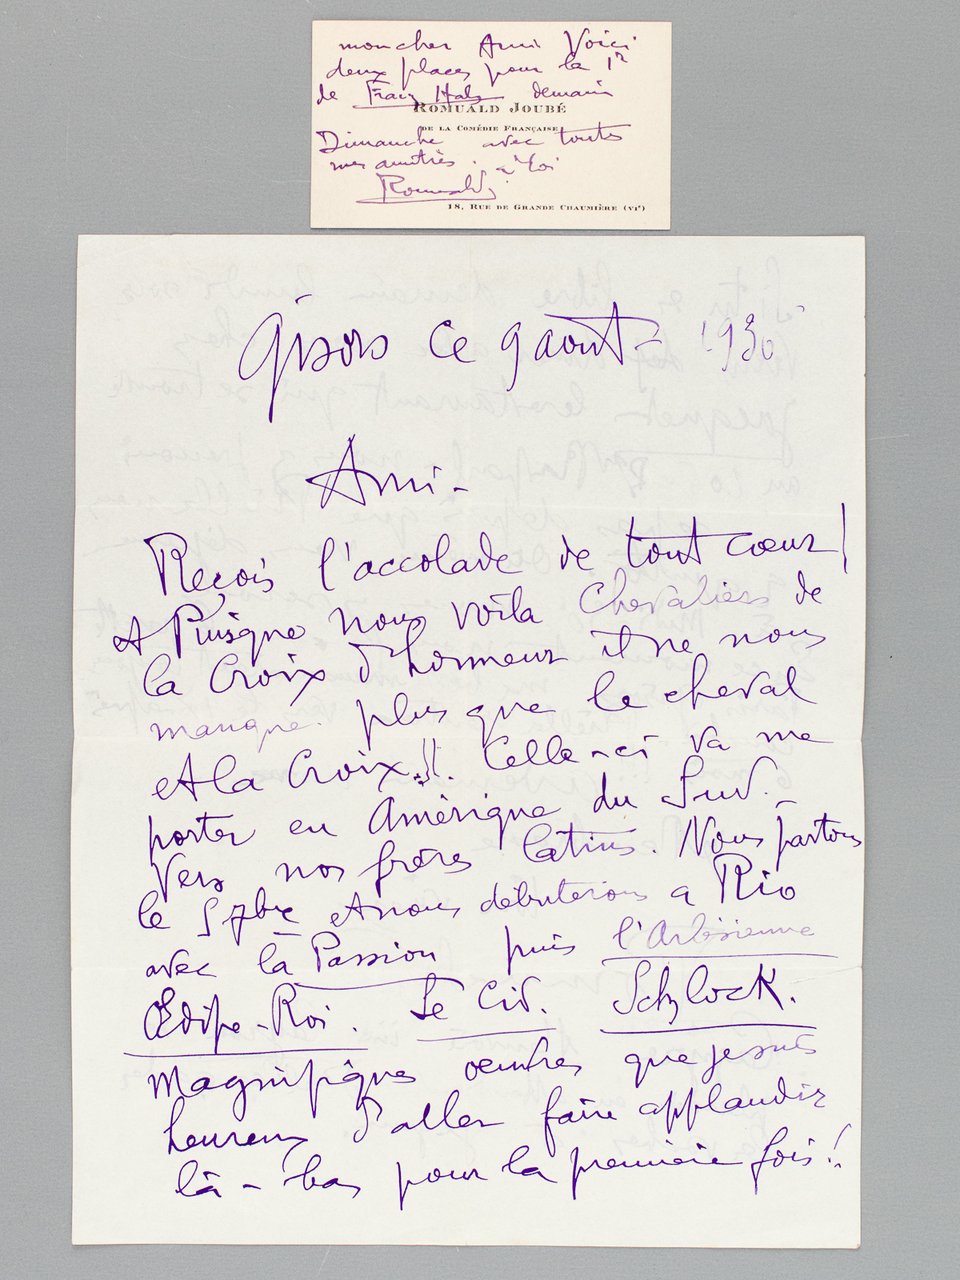 mon cher Ami Voici
deux places pour la 1re
de Franz Hals demain
ROMUALD JOUBÉ
DE LA COMÉDIE FRANÇAISE
Dimanche avec toutes
mes amitiés. à toi
Romuald.
18, RUE DE GRANDE CHAUMIÈRE (VIe)
Gisors ce 9 août - 1930
Ami -
Reçois l'accolade de tout cœur!
et Puisque nous voila Chevaliers de
la Croix d'honneur il ne nous
manque plus que le cheval
et la Croix!!. Celle-ci va me
porter en Amérique du Sud. -
Vers nos frères latins. Nous partons
le 5 7bre et nous débuterons a Rio
avec la Passion puis l'Arlésienne
Œdipe-Roi. Le Cid. Schylock.
Magnifiques œuvres que je suis
heureux d'aller faire applaudir
là-bas pour la première fois!!